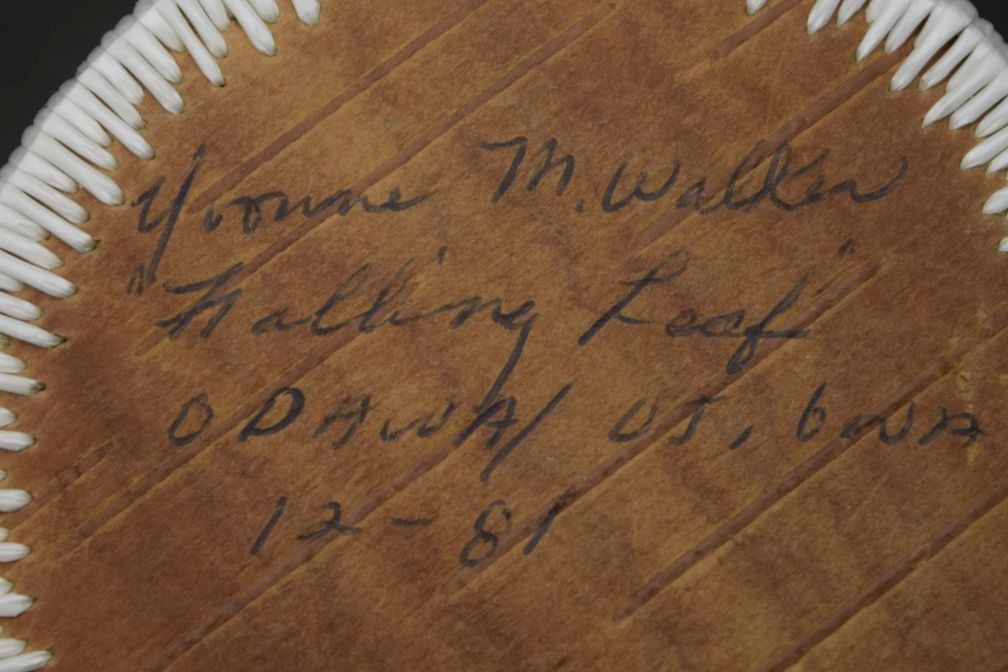 Yvonne M. Walker
"Falling Leaf"
ODAWA/ OJ, bWA
12-81